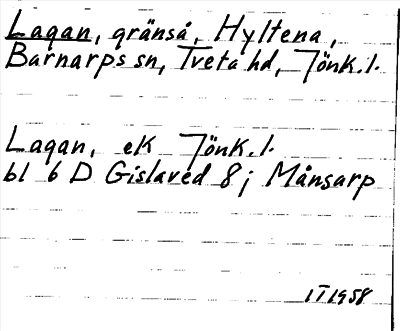 Lagan, gränså, Hyltena,
Barnarps sn, Tveta hd, Jönk. l.
Lagan, ek Jönk. l.
bl 6 D Gislaved 8 j Månsarp
1 I 1958